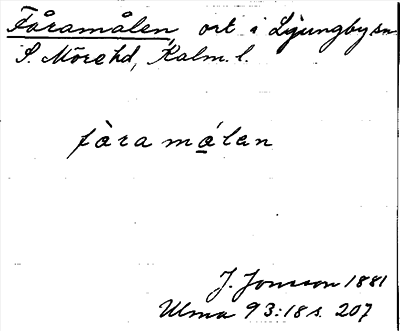 Fåramålen, ort i Ljungby sn.
S. Möre hd, Kalm. l.
fàra målen
J. Jonsson 1881
Ulma 93:18 s. 207